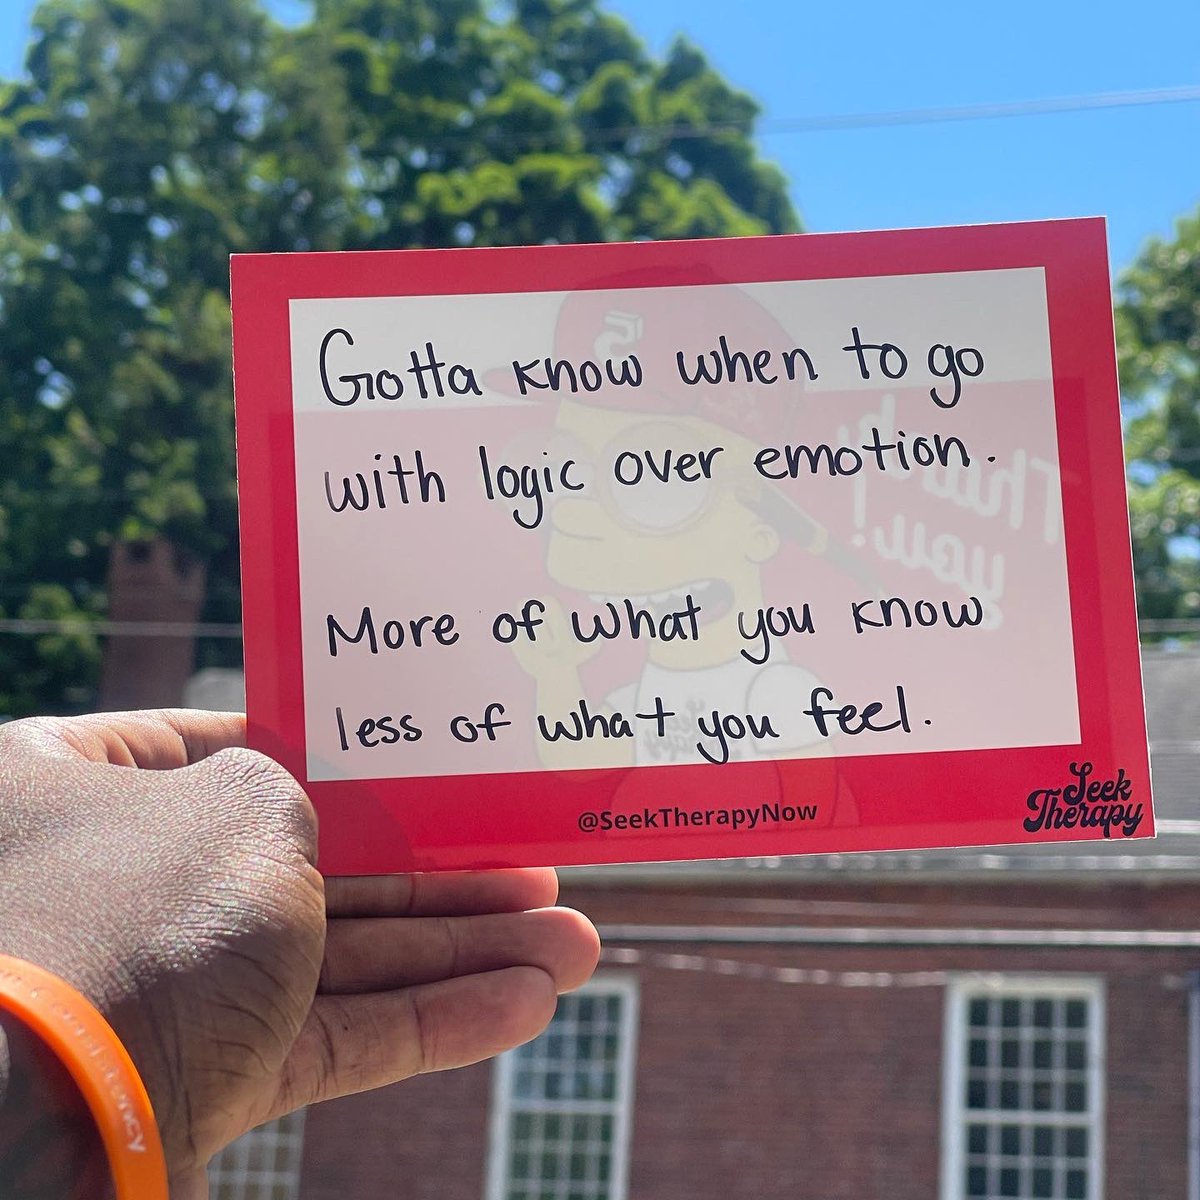 Gotta know when to go
with logic over emotion.
More of what you know
less of what you feel.
@SeekTherapyNow
Seek
Therapy
Thank
you!
5